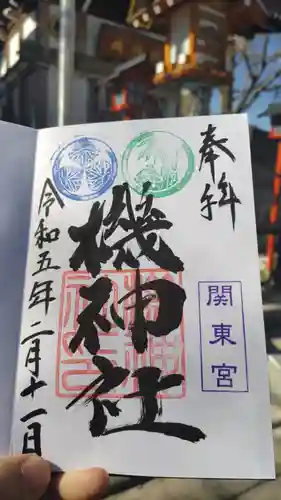 奉拝
関東宮
機神社
令和五年二月十一日